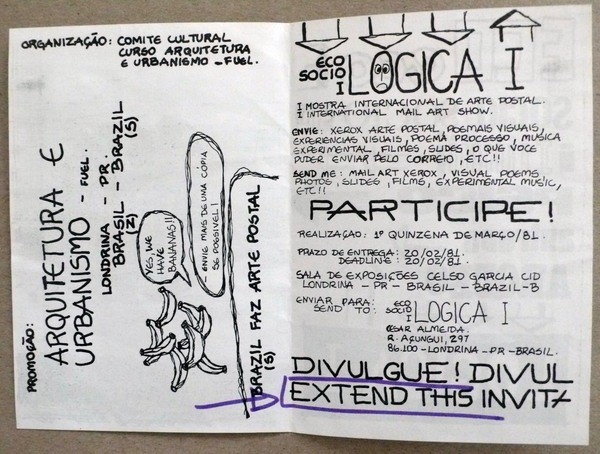 ORGANIZAÇÃO: COMITE CULTURAL
CURSO ARQUITETURA
E URBANISMO - FUEL.
PROMOÇÃO:
ARQUITETURA E
URBANISMO - FUEL.
LONDRINA - PR.
BRASIL - BRAZIL
(Z) (S)
YES, WE
HAVE
BANANAS!!
ENVIE MAIS DE UMA CÓPIA
SE POSSIVEL!
BRAZIL FAZ ARTE POSTAL
(S)
ECO
SOCIO
I LOGICA I
I MOSTRA INTERNACIONAL DE ARTE POSTAL.
I INTERNATIONAL MAIL ART SHOW.
ENVIE: XEROX ARTE POSTAL, POEMAIS VISUAIS,
EXPERIENCIAS VISUAIS, POEMA PROCESSO, MUSICA
EXPERIMENTAL, FILMES, SLIDES, O QUE VOCE
PUDER ENVIAR PELO CORREIO, ETC!!
SEND ME: MAIL ART XEROX, VISUAL POEMS,
PHOTOS, SLIDES, FILMS, EXPERIMENTAL MUSIC,
ETC!!
PARTICIPE!
REALIZAÇÃO: 1ª QUINZENA DE MARÇO/81.
PRAZO DE ENTREGA: 20/02/81.
DEADLINE: 20/02/81.
SALA DE EXPOSIÇÕES CELSO GARCIA CID
LONDRINA - PR - BRASIL - BRAZIL-B
ENVIAR PARA:
SEND TO:
ECO
SOCIO
I LOGICA I
CESAR ALMEIDA.
R. AÇUNGUI, 297
86.100 - LONDRINA - PR - BRASIL.
DIVULGUE! DIVUL
EXTEND THIS INVITA